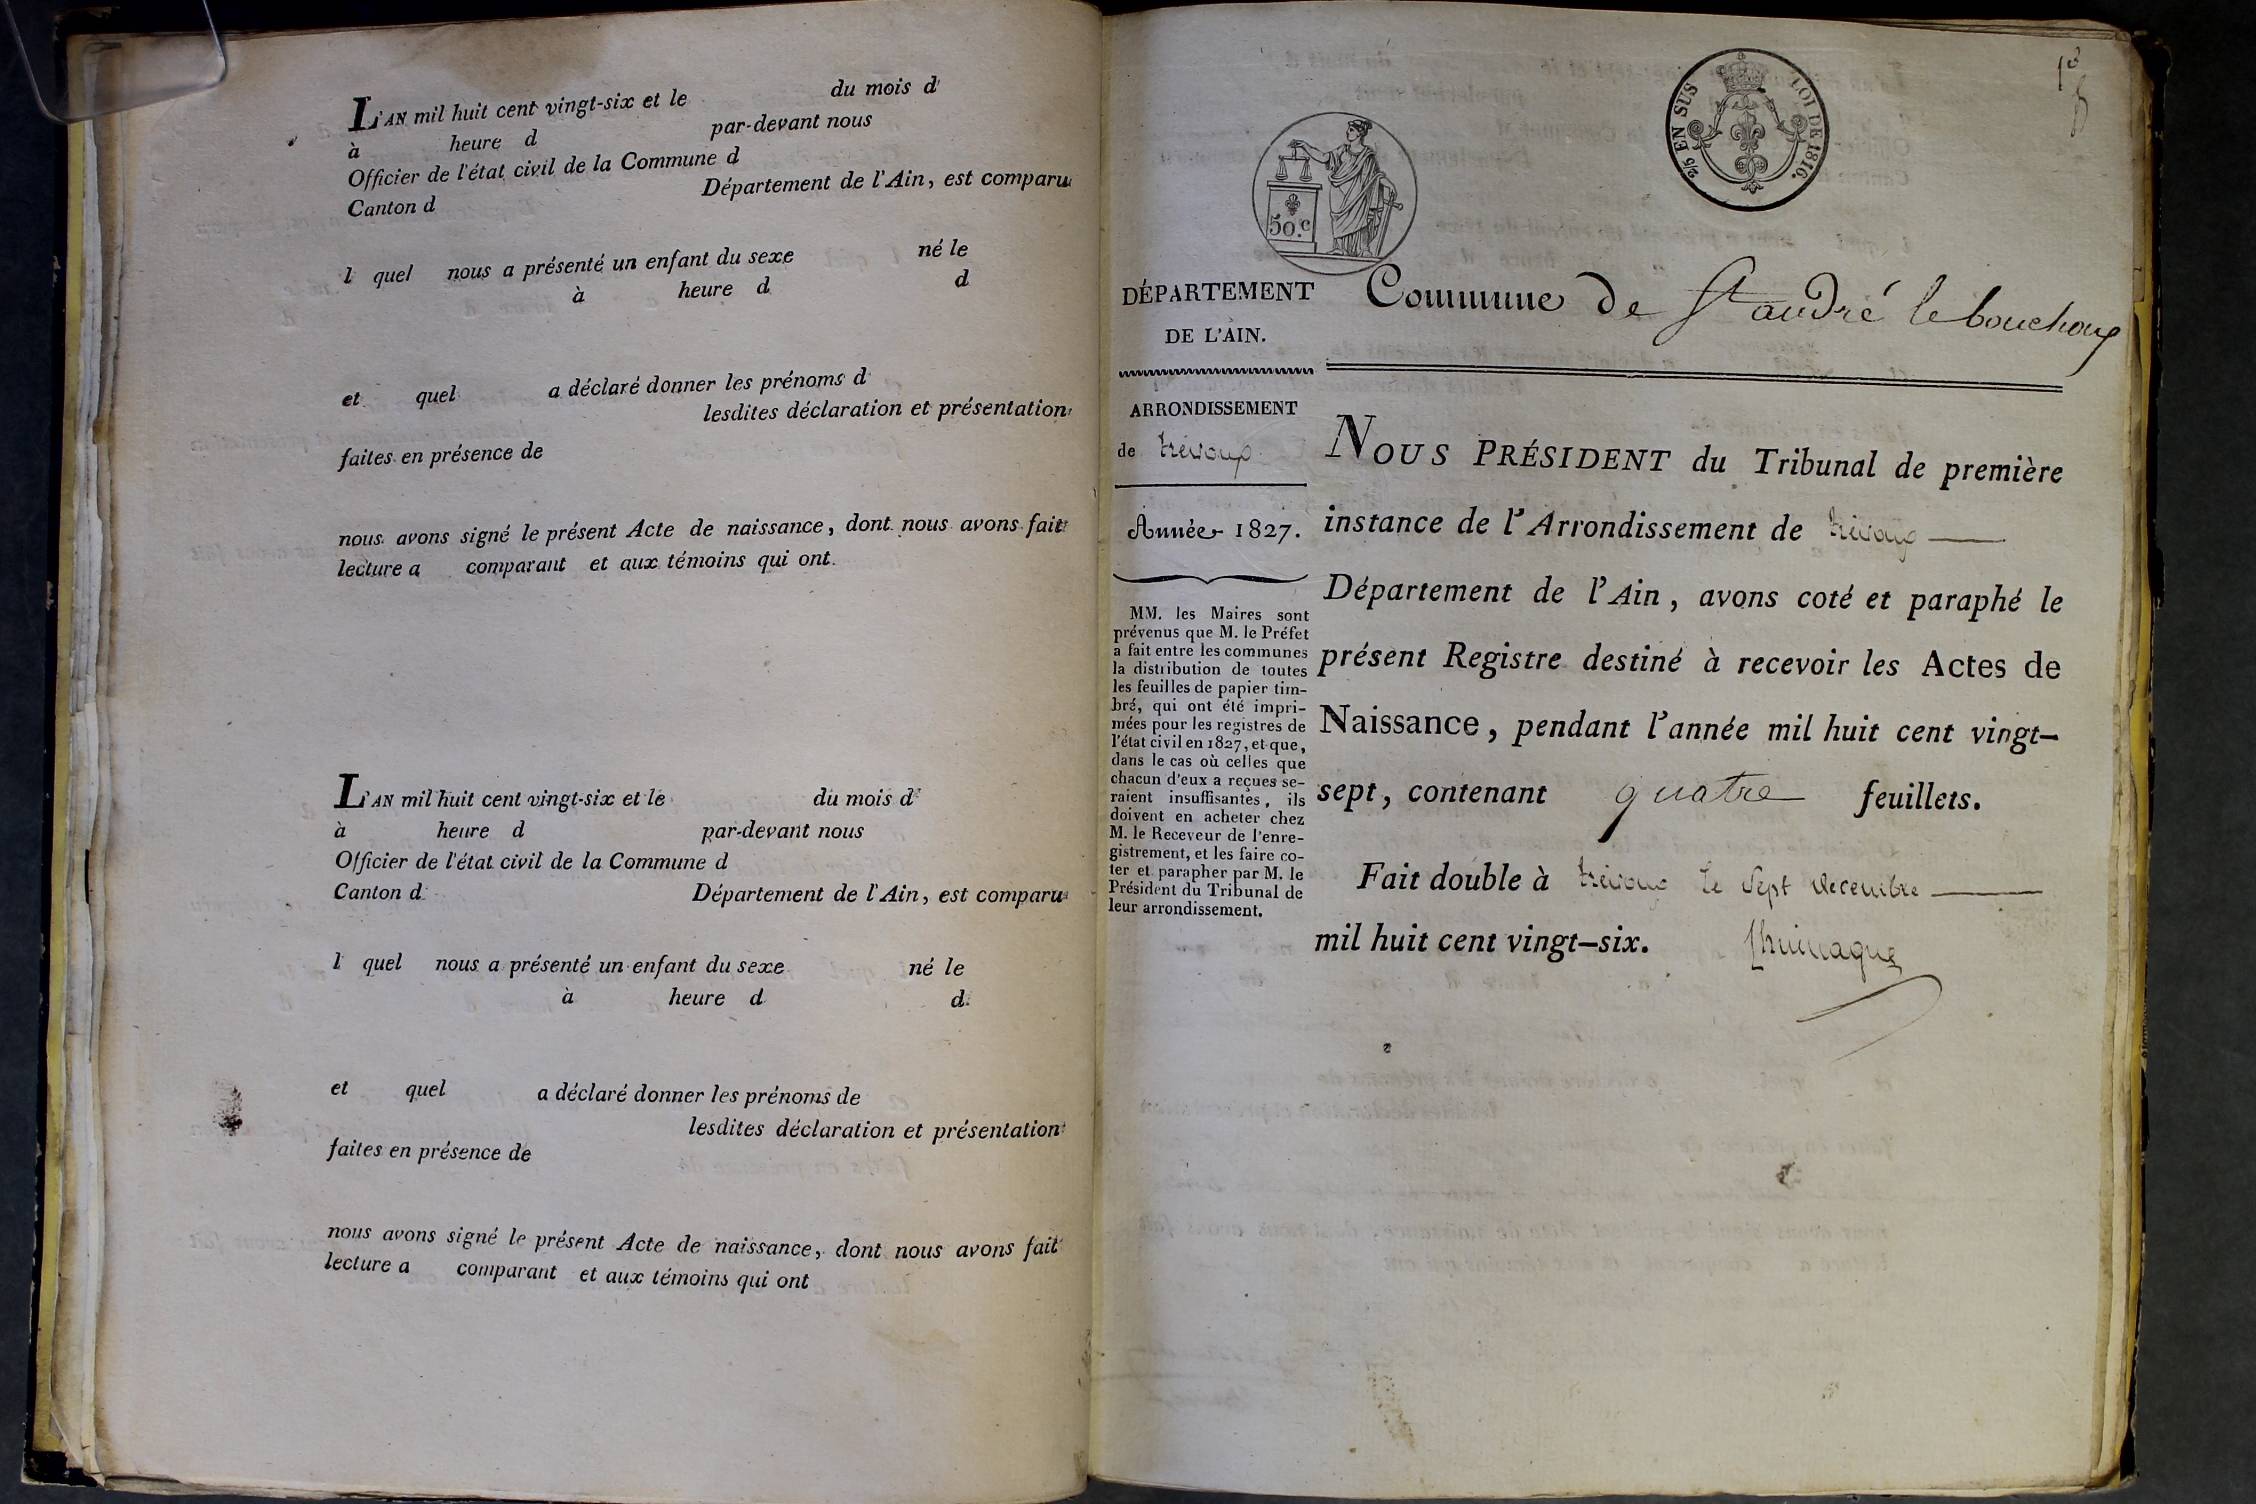 L'AN mil huit cent vingt-six et le du mois d
à heure d par-devant nous
Officier de l'état civil de la Commune d
Canton d Département de l'Ain, est comparu
l quel nous a présenté un enfant du sexe né le
à heure d d
et quel a déclaré donner les prénoms d
lesdites déclaration et présentation
faites en présence de
nous avons signé le présent Acte de naissance, dont nous avons fait
lecture a comparant et aux témoins qui ont
L'AN mil huit cent vingt-six et le du mois d
à heure d par-devant nous
Officier de l'état civil de la Commune d
Canton d Département de l'Ain, est comparu
l quel nous a présenté un enfant du sexe né le
à heure d d
et quel a déclaré donner les prénoms de
lesdites déclaration et présentation
faites en présence de
nous avons signé le présent Acte de naissance, dont nous avons fait
lecture a comparant et aux témoins qui ont
2/5 EN SUS LOI DE 1816.
50.c
DÉPARTEMENT
DE L'AIN.
Commune de St andré le bouchoux
ARRONDISSEMENT
de trévoux
Année 1827.
MM. les Maires sont
prévenus que M. le Préfet
a fait entre les communes
la distribution de toutes
les feuilles de papier tim-
bré, qui ont été impri-
mées pour les registres de
l'état civil en 1827, et que,
dans le cas où celles que
chacun d'eux a reçues se-
raient insuffisantes, ils
doivent en acheter chez
M. le Receveur de l'enre-
gistrement, et les faire co-
ter et parapher par M. le
Président du Tribunal de
leur arrondissement.
NOUS PRÉSIDENT du Tribunal de première
instance de l'Arrondissement de trévoux
Département de l'Ain, avons coté et paraphé le
présent Registre destiné à recevoir les Actes de
Naissance, pendant l'année mil huit cent vingt-
sept, contenant quatre feuillets.
Fait double à trévoux le sept decembre
mil huit cent vingt-six.